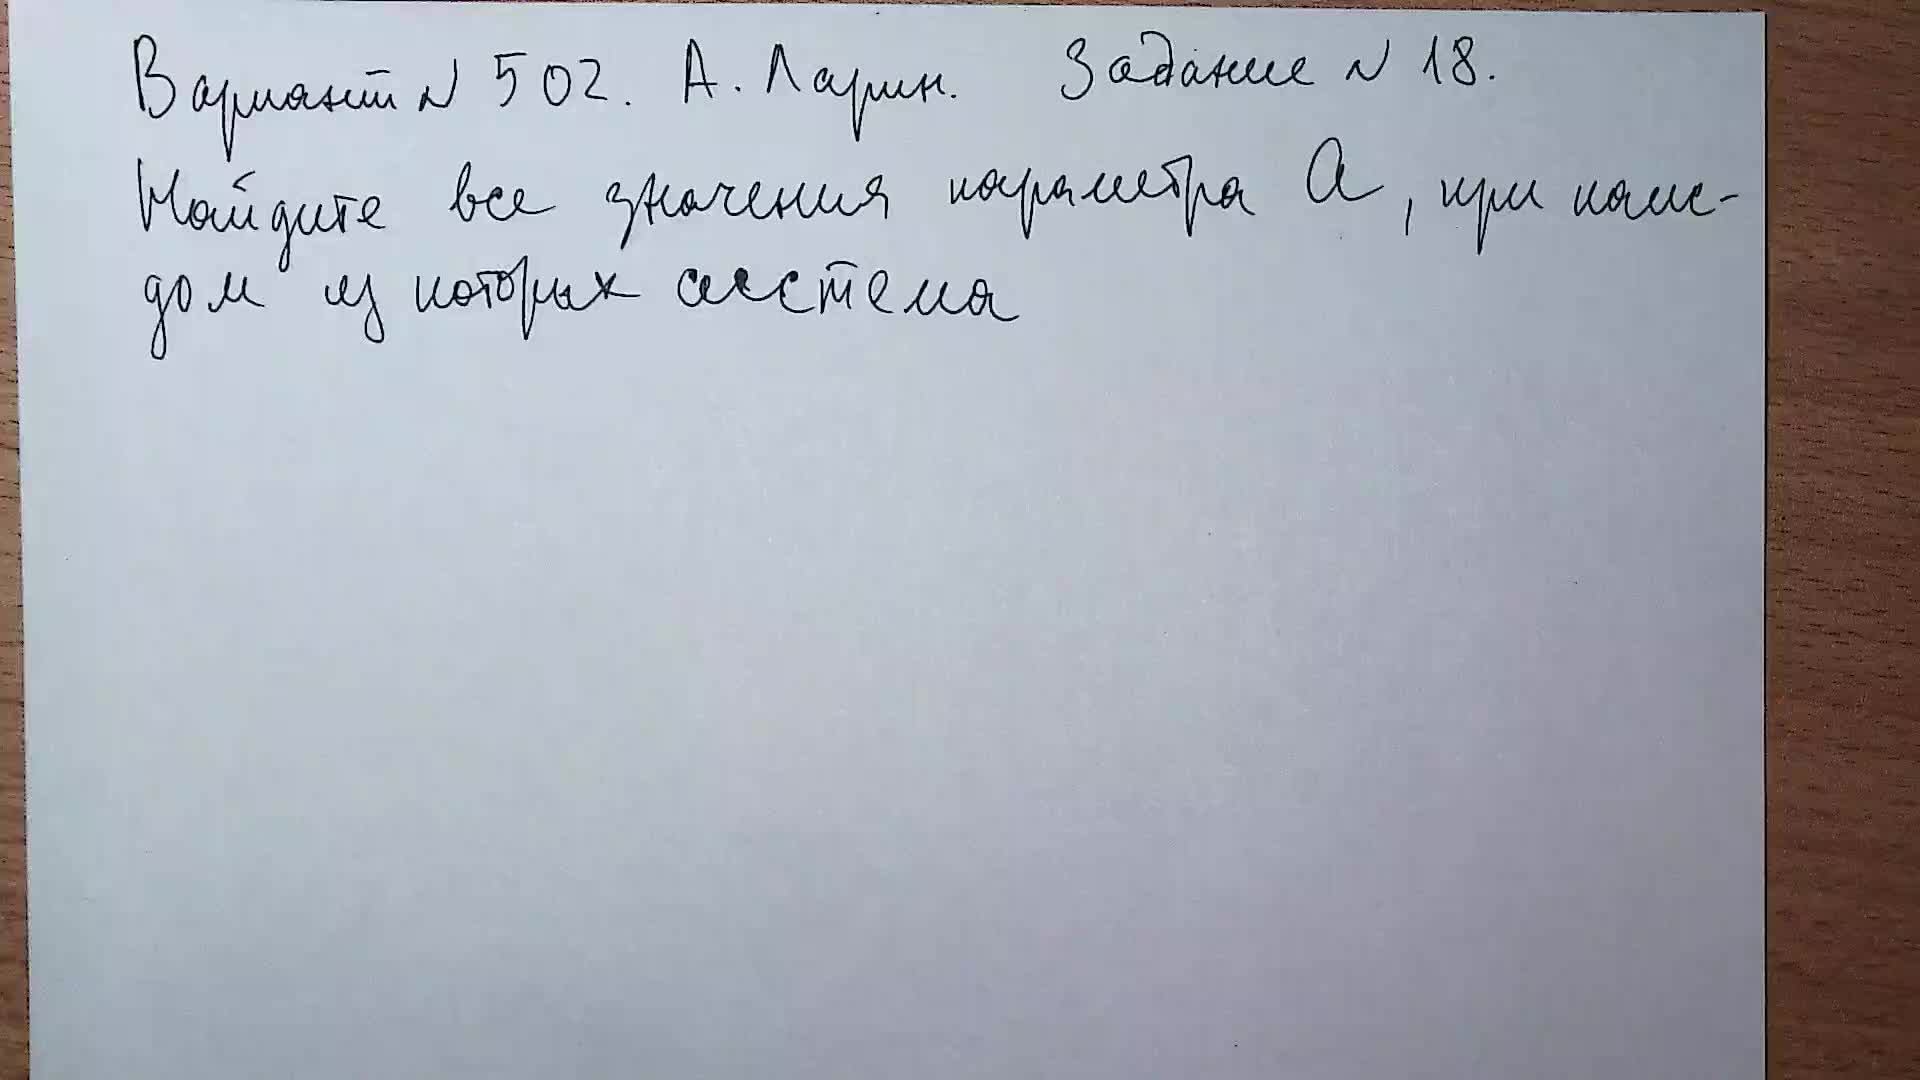 Вариант N 502. А. Ларин. Задание N 18.
Найдите все значения параметра а, при каж-
дом из которых система